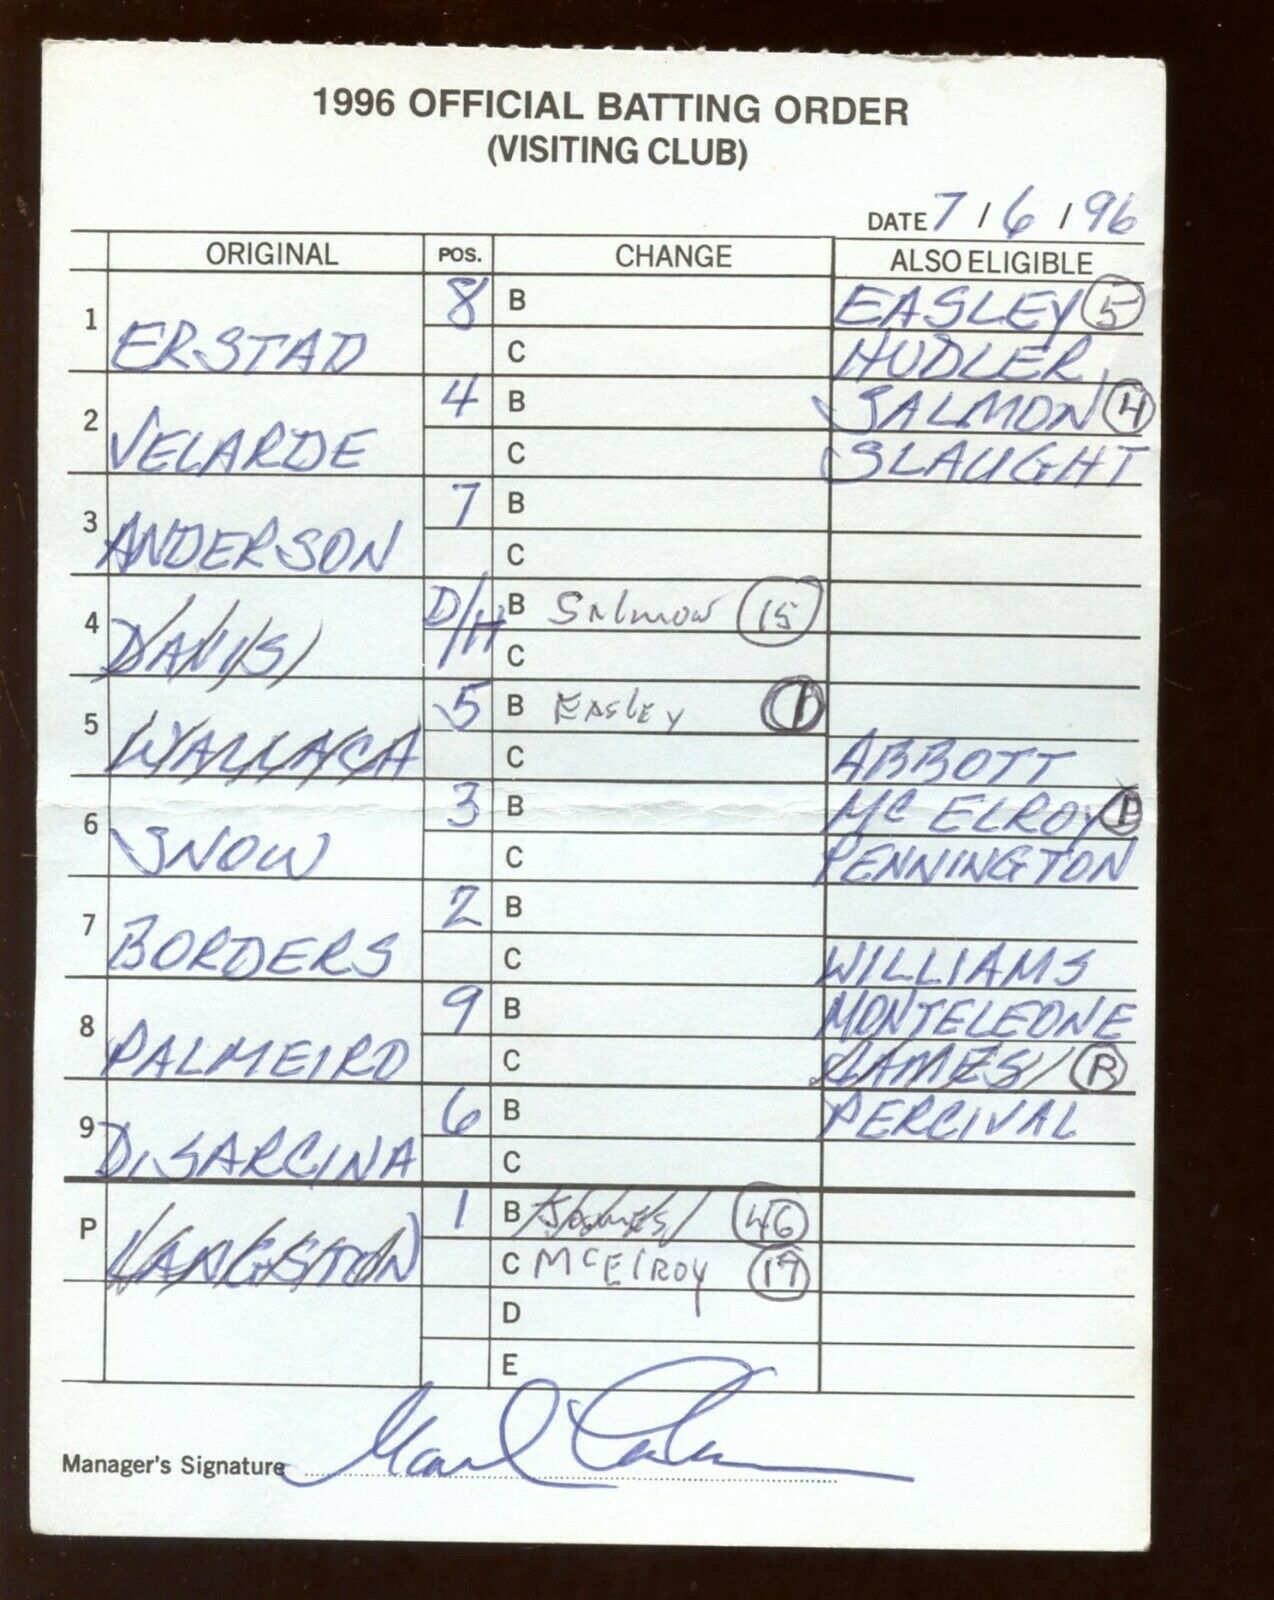 1996 OFFICIAL BATTING ORDER
(VISITING CLUB)
DATE 7 / 6 / 96
ORIGINAL POS. CHANGE ALSO ELIGIBLE
1 ERSTAD 8 B EASLEY 5
C HUDLER
2 VELARDE 4 B SALMON H
C SLAUGHT
3 ANDERSON 7 B
C
4 DAVIS D/H B SALMON 15
C
5 WALLACA 5 B EASLEY 1
C ABBOTT
6 SNOW 3 B MC ELROY
C PENNINGTON
7 BORDERS 2 B
C WILLIAMS
8 PALMEIRO 9 B MONTELEONE
C JAMES
9 DISARCINA 6 B PERCIVAL
C
P LANGSTON 1 B JAMES 46
C MCELROY
D
E
Manager's Signature